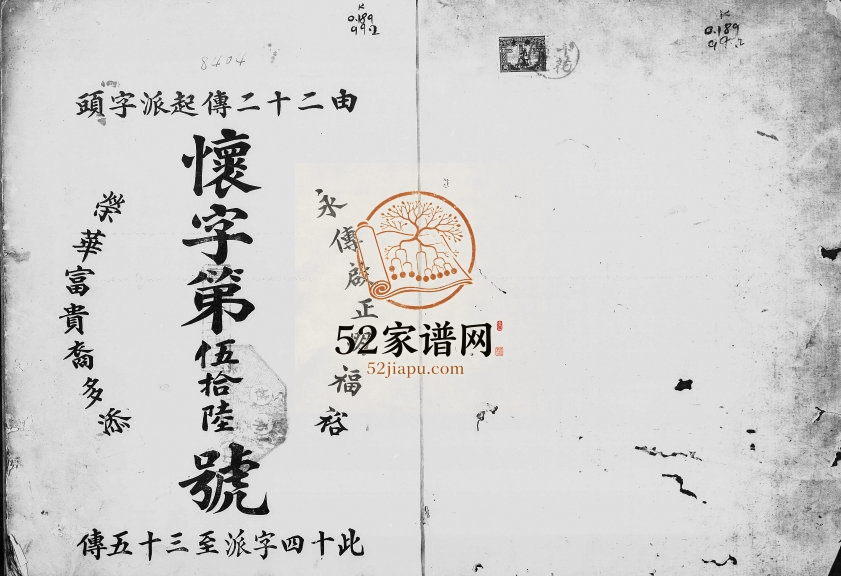 由二十二傳起派字頭
永傳啟正福裕
懷字第伍拾陸號
榮華富貴裔多添
此十四字派至三十五傳
52家谱网
52jiapu.com